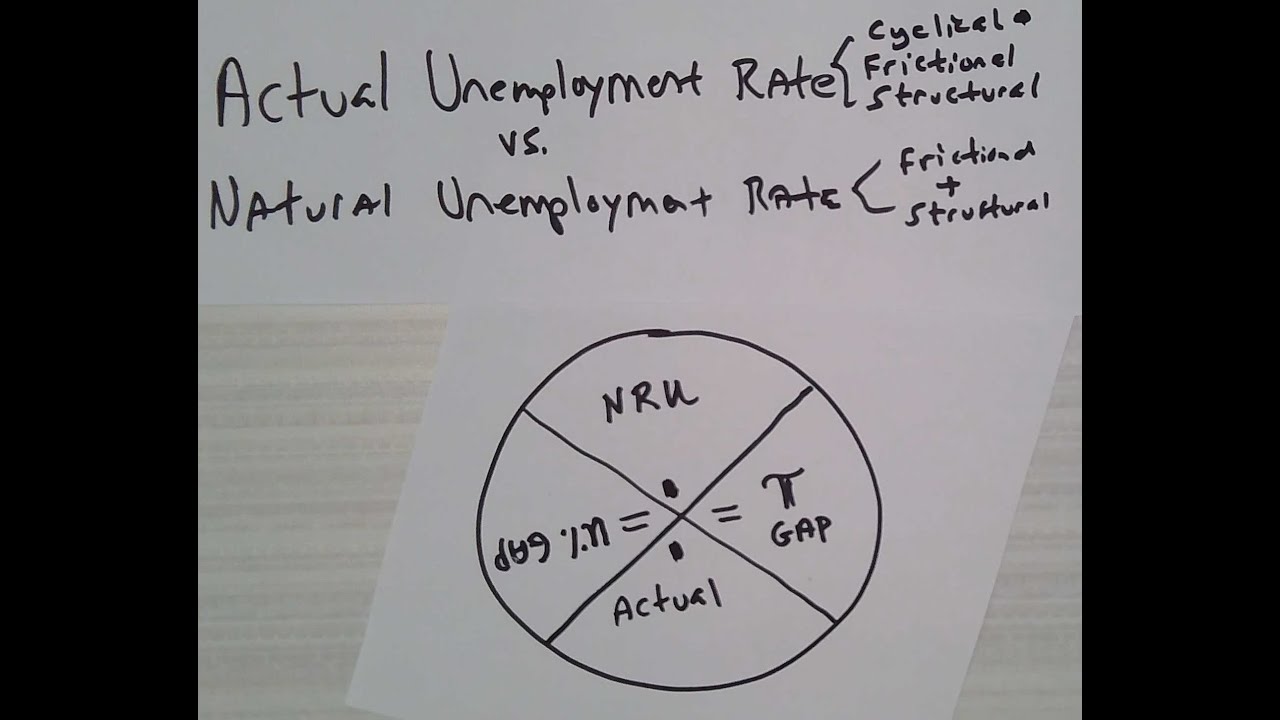 Actual Unemployment Rate { Cyclical •
Frictional
Structural
vs.
Natural Unemploymat Rate < Frictional
+
Structural
NRU
U% GAP = = π
GAP
Actual